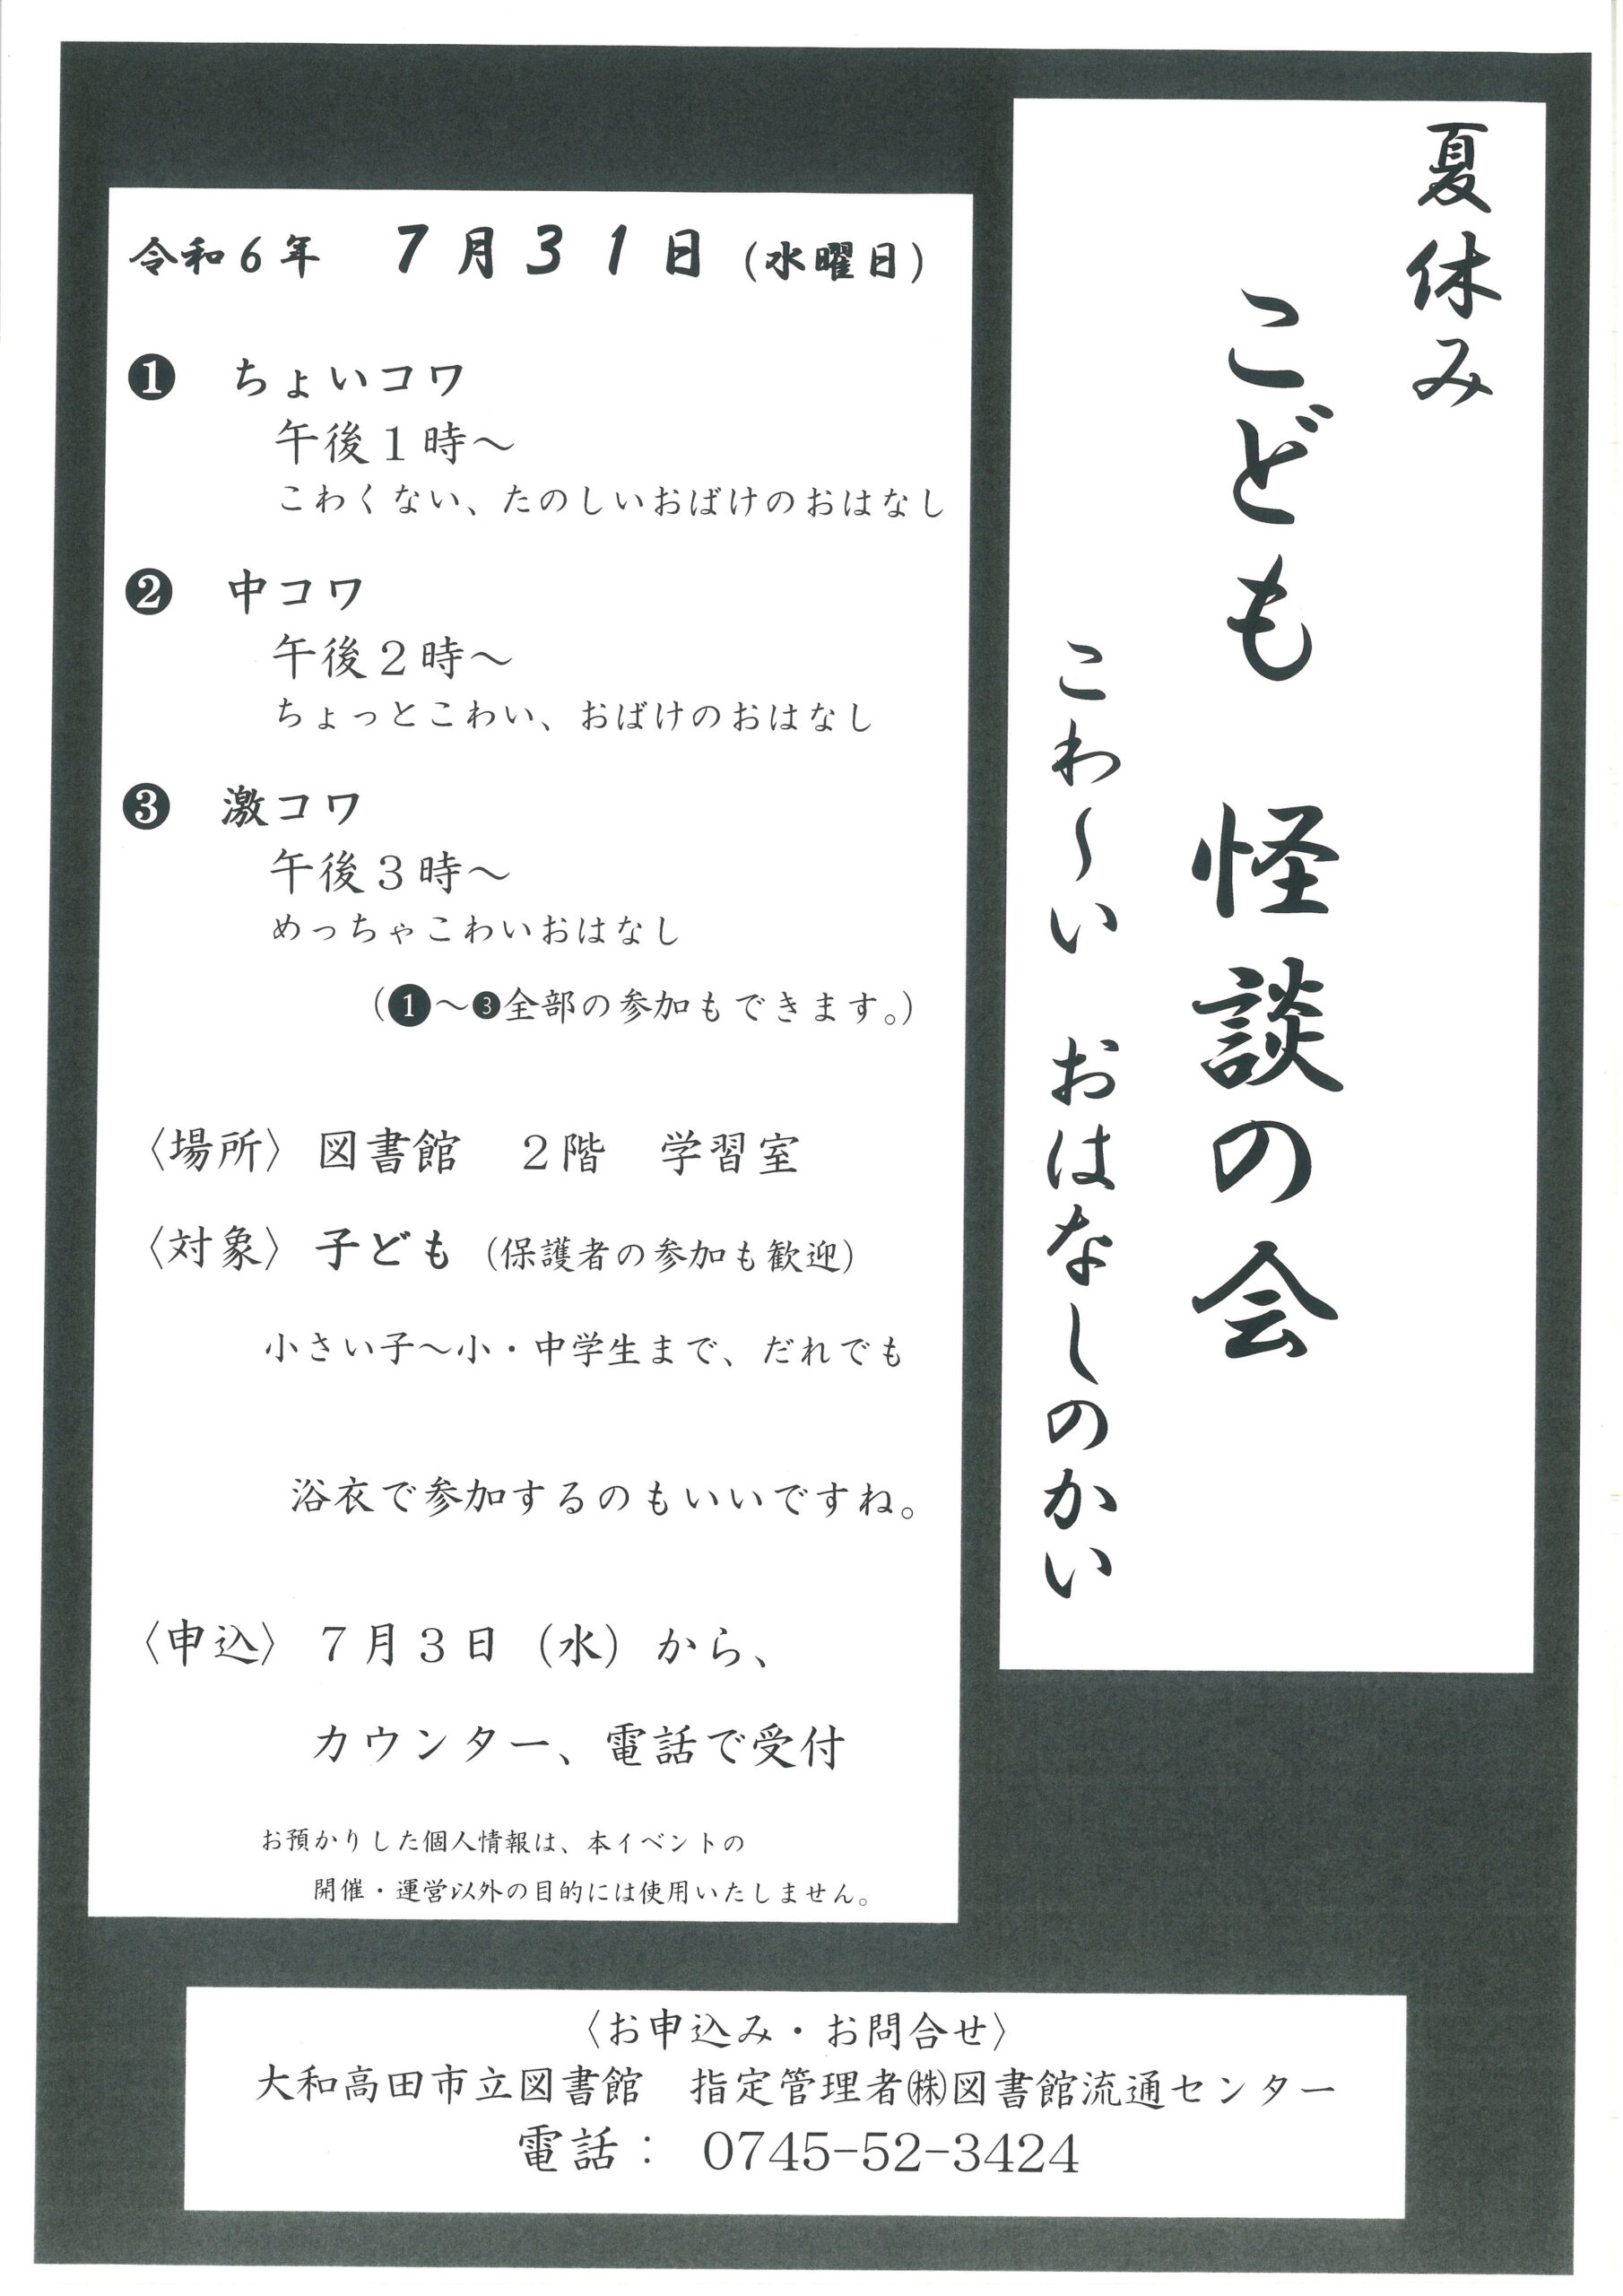 夏休み
こども　怪談の会
こわ～い　おはなしのかい
令和６年　７月３１日（水曜日）
❶　ちょいコワ
午後１時～
こわくない、たのしいおばけのおはなし
❷　中コワ
午後２時～
ちょっとこわい、おばけのおはなし
❸　激コワ
午後３時～
めっちゃこわいおはなし
（❶～❸全部の参加もできます。）
〈場所〉図書館　２階　学習室
〈対象〉子ども（保護者の参加も歓迎）
小さい子～小・中学生まで、だれでも
浴衣で参加するのもいいですね。
〈申込〉７月３日（水）から、
カウンター、電話で受付
お預かりした個人情報は、本イベントの
開催・運営以外の目的には使用いたしません。
〈お申込み・お問合せ〉
大和高田市立図書館　指定管理者㈱図書館流通センター
電話：　0745-52-3424